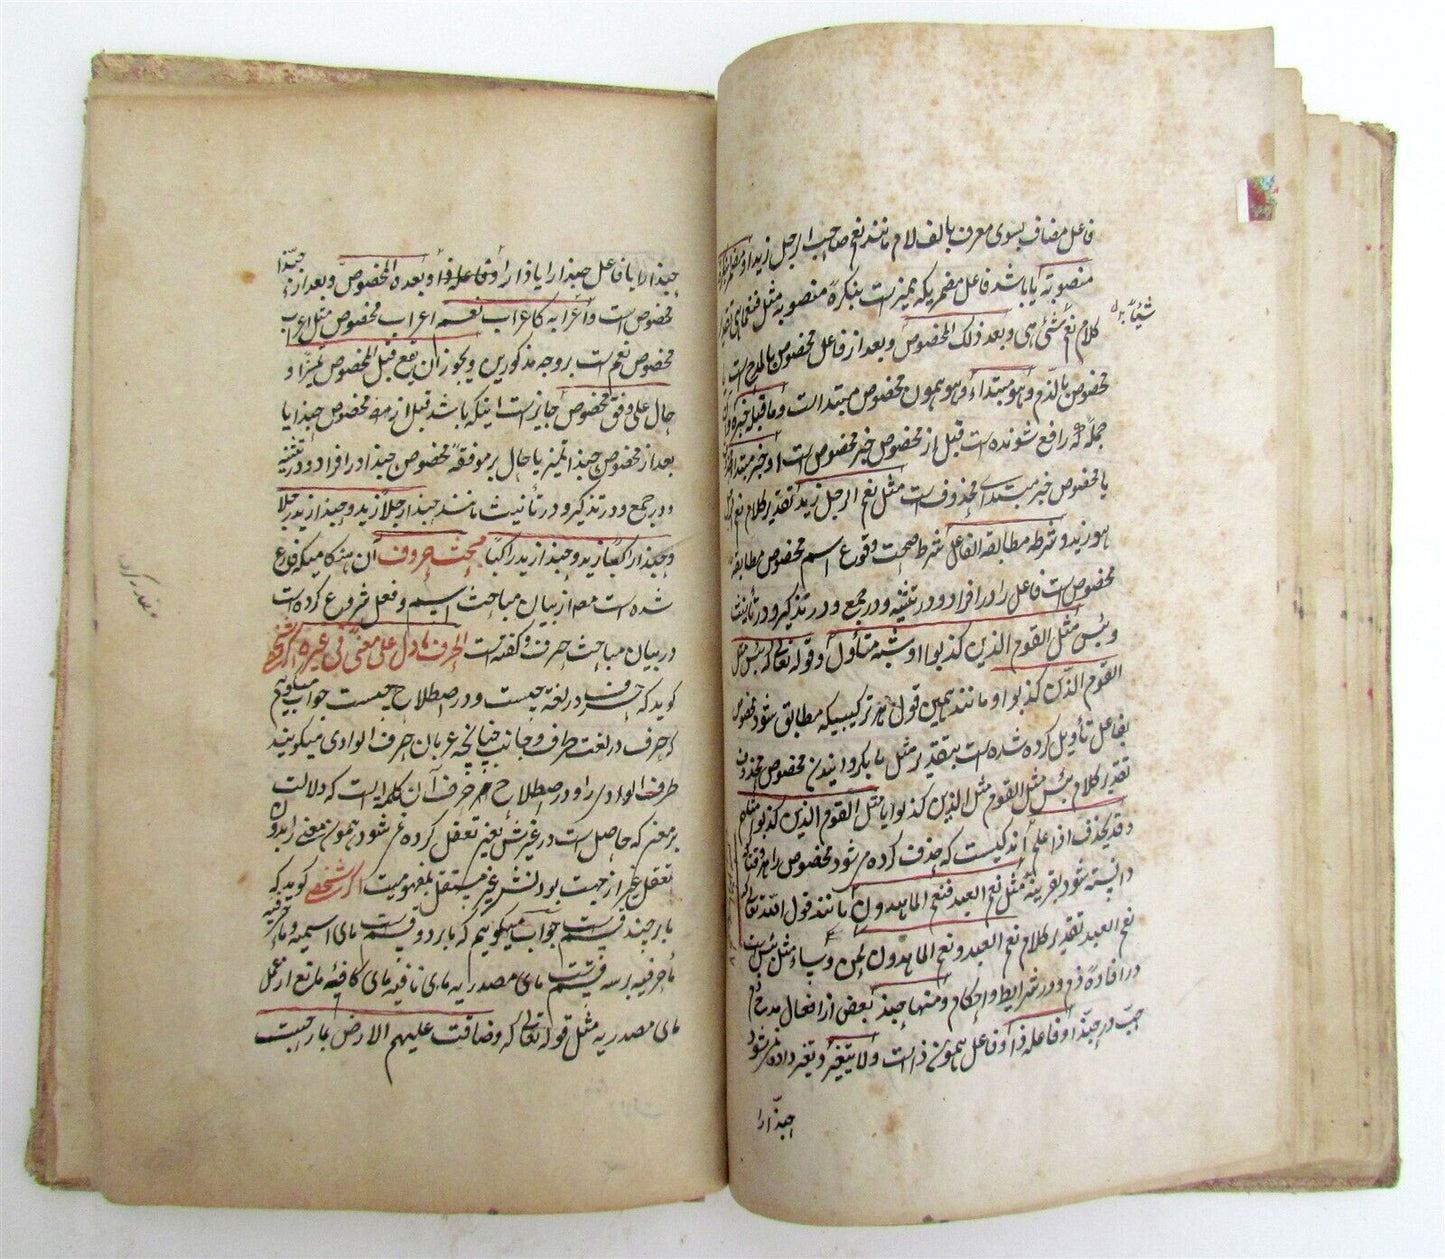 فاعل مضاف بسوی معرف بالف لام مانند نعم صاحب الرجل زید او مضمر
منصوبة یا باشد فاعل مضمریکه ممیز است بنکره منصوبه مثل فنعما هی
کلام نعم شئ هی و بعد ذلک المخصوص و بعد از فاعل مخصوص بالمدح است
شیئاً
مخصوص بالذم و هو مبتداء و هو همون مخصوص مبتدا است و ما قبله خبره
جمله که رافع شونده است قبل از مخصوص خبر مخصوص است او خبر مبتدا
یا مخصوص خبر مبتدای محذوف است مثل نعم الرجل زید تقدیر کلام نعم الرجل
هو زید و شرطه مطابقة الفاعل شرط صحت وقوع اسم مخصوص مطابقه
مخصوص است فاعل را در افراد و در تثنیه و در جمع و در تذکیر و در تأنیث
و بئس مثل القوم الذین کذبوا و شبه متأول و قوله تعالی که بئس مثل
القوم الذین کذبوا و مانند همین قول هر ترکیبیکه مطابق نشود مخصوص
بفاعل تأویل کرده شده است بتقدیر مثل یا بگردانیدن مخصوص محذوف
تقدیر کلام بئس مثل القوم مثل الذین کذبوا یا مثل القوم الذین کذبوا مثلهم
و قد یحذف اذا علم اندکیست که حذف کرده می شود مخصوص را هر وقتیکه
دانسته شود بقرینه مثل نعم العبد فنعم الماهدون مانند قول الله تعالی که
نعم العبد تقدیر کلام نعم العبد و نعم الماهدون نحن و ساء مثل بئس است
در افاده ذم و در شرایط و احکام و منها حبذ بعضی از افعال مدح و ذم
حب در حبذا و فاعله ذا و فاعل همون ذا است و لا یتغیر و تغیر داده نمی شود
حبذا را
حبذا را یا فاعل حبذا را یا ذا را و فاعله ذا و بعده المخصوص و بعد از حبذا
مخصوص است و اعرابه کاعراب نعم اعراب مخصوص مثل اعراب
مخصوص نعم است بر وجه مذکورین و یجوز ان یقع قبل المخصوص تمیزاً و
حال علی وفق مخصوص جایز است اینکه باشد قبل از مخصوص حبذا یا
بعد از مخصوص حبذا تمیز یا حال بر موفقه مخصوص حبذا در افراد و در تثنیه
و در جمع و در تذکیر و در تأنیث مانند حبذا رجلاً زید و حبذا زید رجلا
و حبذا راکباً زید و حبذا زید راکباً مبحث حروف آن هنگامیکه فارغ
شده است مصـ از بیان مباحث اسم و فعل شروع کرده است
در بیان مباحث حرف و گفته است الحرف ما دل علی معنی فی غیره اگر شخصی
کوید که حرف در لغة چیست و در اصطلاح چیست جواب میکوییم
که حرف در لغت طرف و جانب چنانچه عربان حرف الوادی میکویند
طرف الوادی را و در اصطلاح حرف آن کلمه ایست که دلالت
بر معنی که حاصل است در غیرش یعنی تعقل کرده می شود همون معنی را بدون
تعقل غیر از جهت بودنش غیر مستقل بمفهومیت اگر شخصی کوید که
ما بر چند قسم است جواب میکوییم که ما بر دو قسم است مای اسمیه و ما حرفیه
ما حرفیه بر سه قسم است مای مصدریه مای نافیه مای کافیه مانع از عمل
مای مصدریه مثل قوله تعالی که و ضاقت علیهم الارض بما رحبت